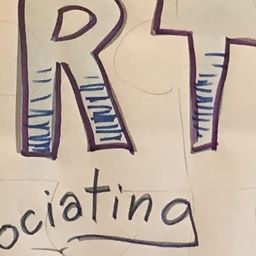 RT
ociating